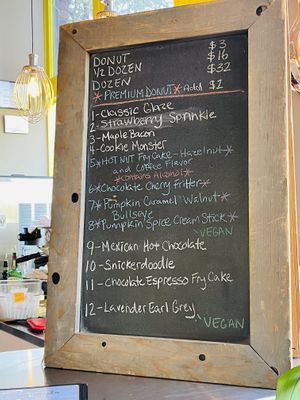 DONUT $3
1/2 DOZEN $16
DOZEN $32
*PREMIUM DONUT* Add $1
1-Classic Glaze
2-Strawberry Sprinkle
3-Maple Bacon
4-Cookie Monster
5*HOT NUT Fry Cake-Hazelnut*
and Coffee Flavor
*Contains Alcohol*
6*Chocolate Cherry Fritter*
7*Pumpkin Caramel Walnut*
Bullseye
8*Pumpkin Spice Cream Stick*
VEGAN
9-Mexican Hot Chocolate
10-Snickerdoodle
11-Chocolate Espresso Fry Cake
12-Lavender Earl Grey
VEGAN